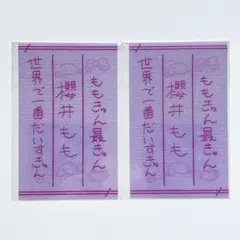 ももきゅん最きゅん
櫻井もも
世界で一番だいすきゅん
ももきゅん最きゅん
櫻井もも
世界で一番だいすきゅん